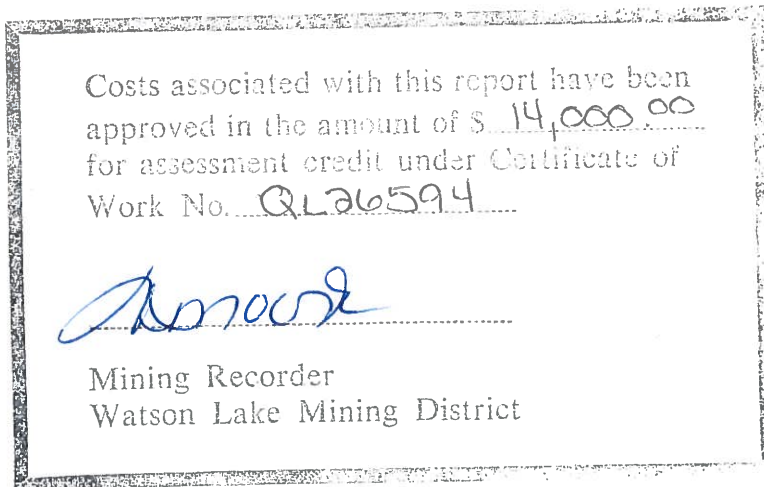 Costs associated with this report have been
approved in the amount of $ 14,000.00
for assessment credit under Certificate of
Work No. QL26594
Mining Recorder
Watson Lake Mining District